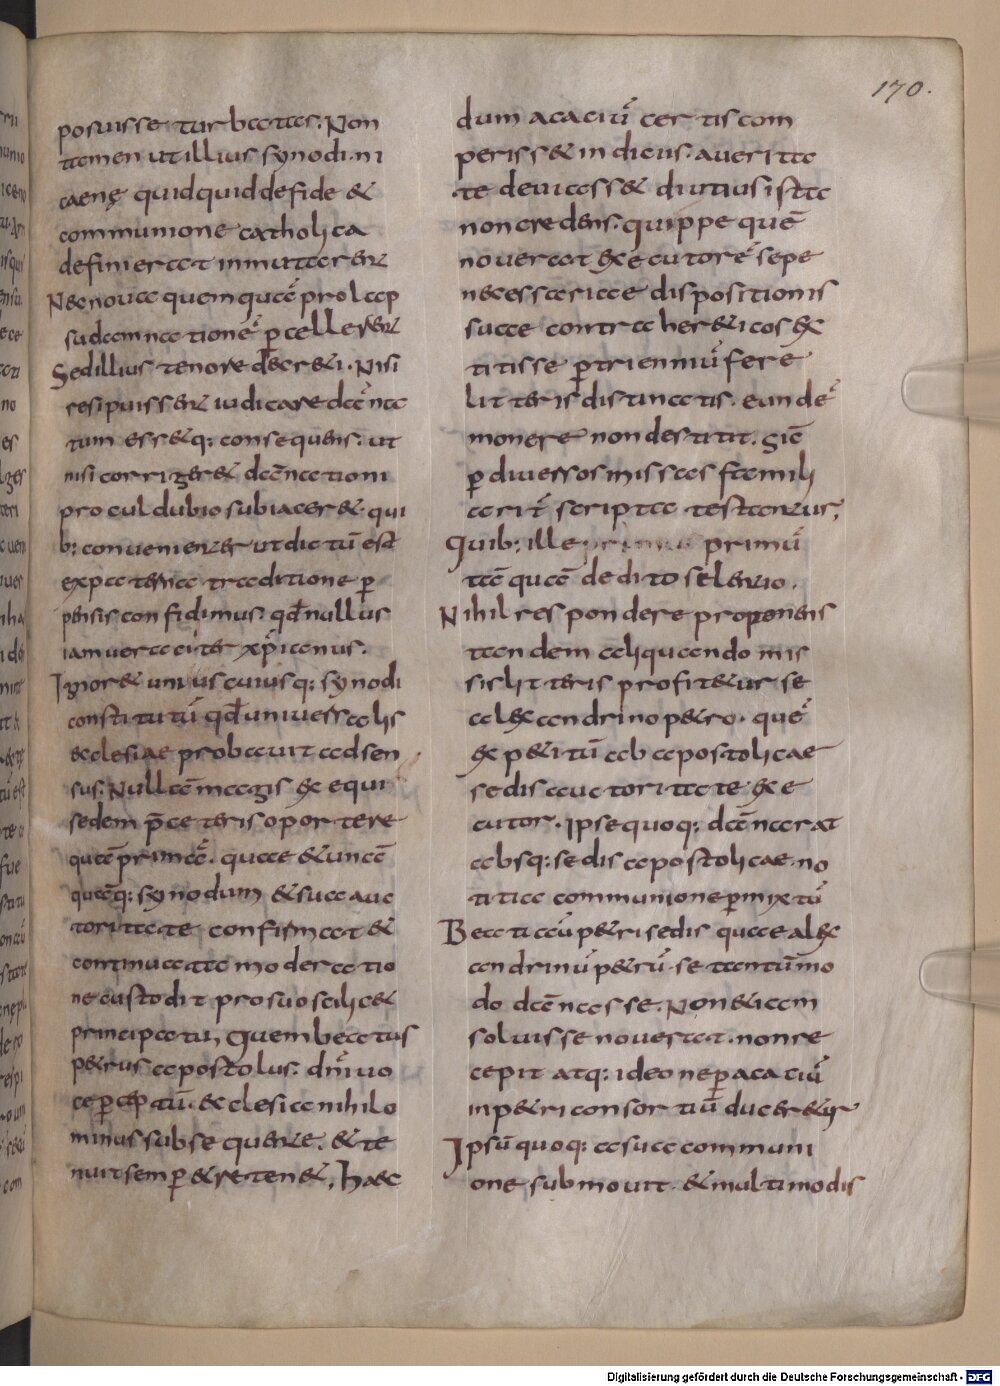 170.
posuisse turbatas. Non
tamen ut illius synodi ni
caenę quidquid de fide &
communione catholica
definierat inmutarent
Nec noua quemquā p̄ prolap
su damnationē p̄celler&
Sed illius tenore decr&i. Nisi
resipuissent iudicare dānā
tum ess&q: consequens. ut
nisi corriger& dānationi
procul dubio subiacer&. qui
b: conuenienter ut dictū est
ex paterna traditione p̄
pensis confidimus. qd̄ nullus
iam ueraciter xp̄ianus.
Ignor& uniuscuiusq: synodi
constitutū qd̄ uniuersalis
&clesiae probauit adsen
sus. Nullā magis exequi
sedem p̄ ceteris oportere
quā primā. quae & unā
quāq: synodum & sua auc
toritate confirmat &
continuata moderatio
ne custodit pro suo scilic&
principatu, quem beatus
p&rus apostolus. dn̄i uo
ce p̄ceptū. &clesia nihilo
minus subsequente. & te
nuit semp̄ & reten&, Haec
dum acaciū certis com
periss& indiciis. a uerita
te deuiass& diutius ista
non credens. quippe quē
nouerat executorē sepe
necessariae dispositionis
suae contra her&icos ex
titisse p̄ trienniū fere
litteris distinatis. eundē
monere non destitit. sicē
p̄ diuersos missas famili
ariē scripta testantur,
Quib: ille primū
tā quā dedito silentio.
Nihil respondere proponens
tandem aliquando mis
sis litteris profitetur se
alexandrino p&ro. quē
exp&itū ab apostolicae
sedis auctoritate exe
cutor. Ipse quoq: dānarat
absq: sedis apostolicae. no
titia communione p̄mixtū
Beatiaū p&ri sedis quae alex
andrinū p&rū. se tantūmo
do dānasse. Non &iam
soluisse nouerat. non re
cepit atq: ideo ne p̄ acaciū
in p&ri consortiū ducer&ur
Ipsū quoq: a sua communi
one submouit. & multimodis
Digitalisierung gefördert durch die Deutsche Forschungsgemeinschaft - DFG